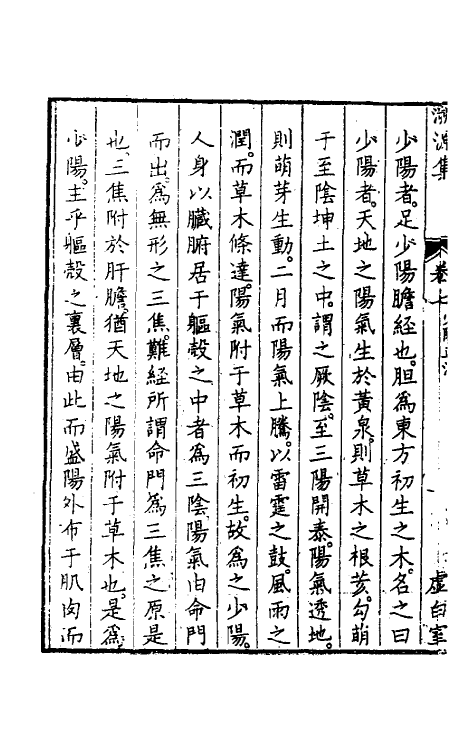 溯源集
卷七
虛白室
少陽者。足少陽膽经也。胆為東方初生之木。名之曰
少陽者。天地之陽氣生於黃泉。則草木之根荄。勾萌
于至陰坤土之中。謂之厥陰。至三陽開泰。陽氣透地。
則萌芽生動。二月而陽氣上騰。以雷霆之鼓。風雨之
潤。而草木條達。陽氣附于草木而初生。故為之少陽。
人身以臟腑居于軀殼之中者為三陰陽氣由命門
而出。為無形之三焦。難經所謂命門為三焦之原是
也。三焦附於肝膽。猶天地之陽氣附于草木也。是為
少陽。主乎軀殼之裏層。由此而盛陽外布于肌肉而